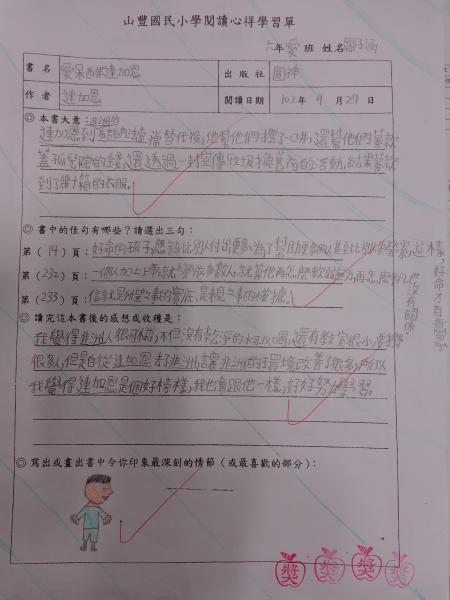 山豐國民小學閱讀心得學習單
六年愛班 姓名
書名 愛呆西非連加恩
出版社 圓神
作者 連加恩
閱讀日期 102年9月27日
◎本書大意：非洲的
連加恩到 當替代役，他幫他們挖了一口井，還幫他們募款
蓋孤兒院的錢，還透過一封 垃圾換舊衣的活動，結果募款
到了 箱的衣服。
◎書中的佳句有哪些？請選出三句：
第(14)頁：好命的孩子，應該比別人付出更多，為了幫助 人，甚至比別人 ，這樣，好命才有意思。
第(232)頁：一個人加上上帝就 變成多數人，就算他再怎麼軟弱 ，再怎麼 也沒有關係。
第(233)頁：信就是所望之事的實底，是未見之事的確據。
◎讀完這本書後的感想或收穫是：
我覺得非洲人很可憐，不但沒有乾淨的水可以喝，還有教室很小，
很多，但是自從連加恩去了非洲，讓非洲的環境改善了很多，所以
我覺得連加恩是個好榜樣，我也會跟他一樣，好好努力學習。
◎寫出或畫出書中令你印象最深刻的情節（或最喜歡的部分）：
獎 獎 獎 獎